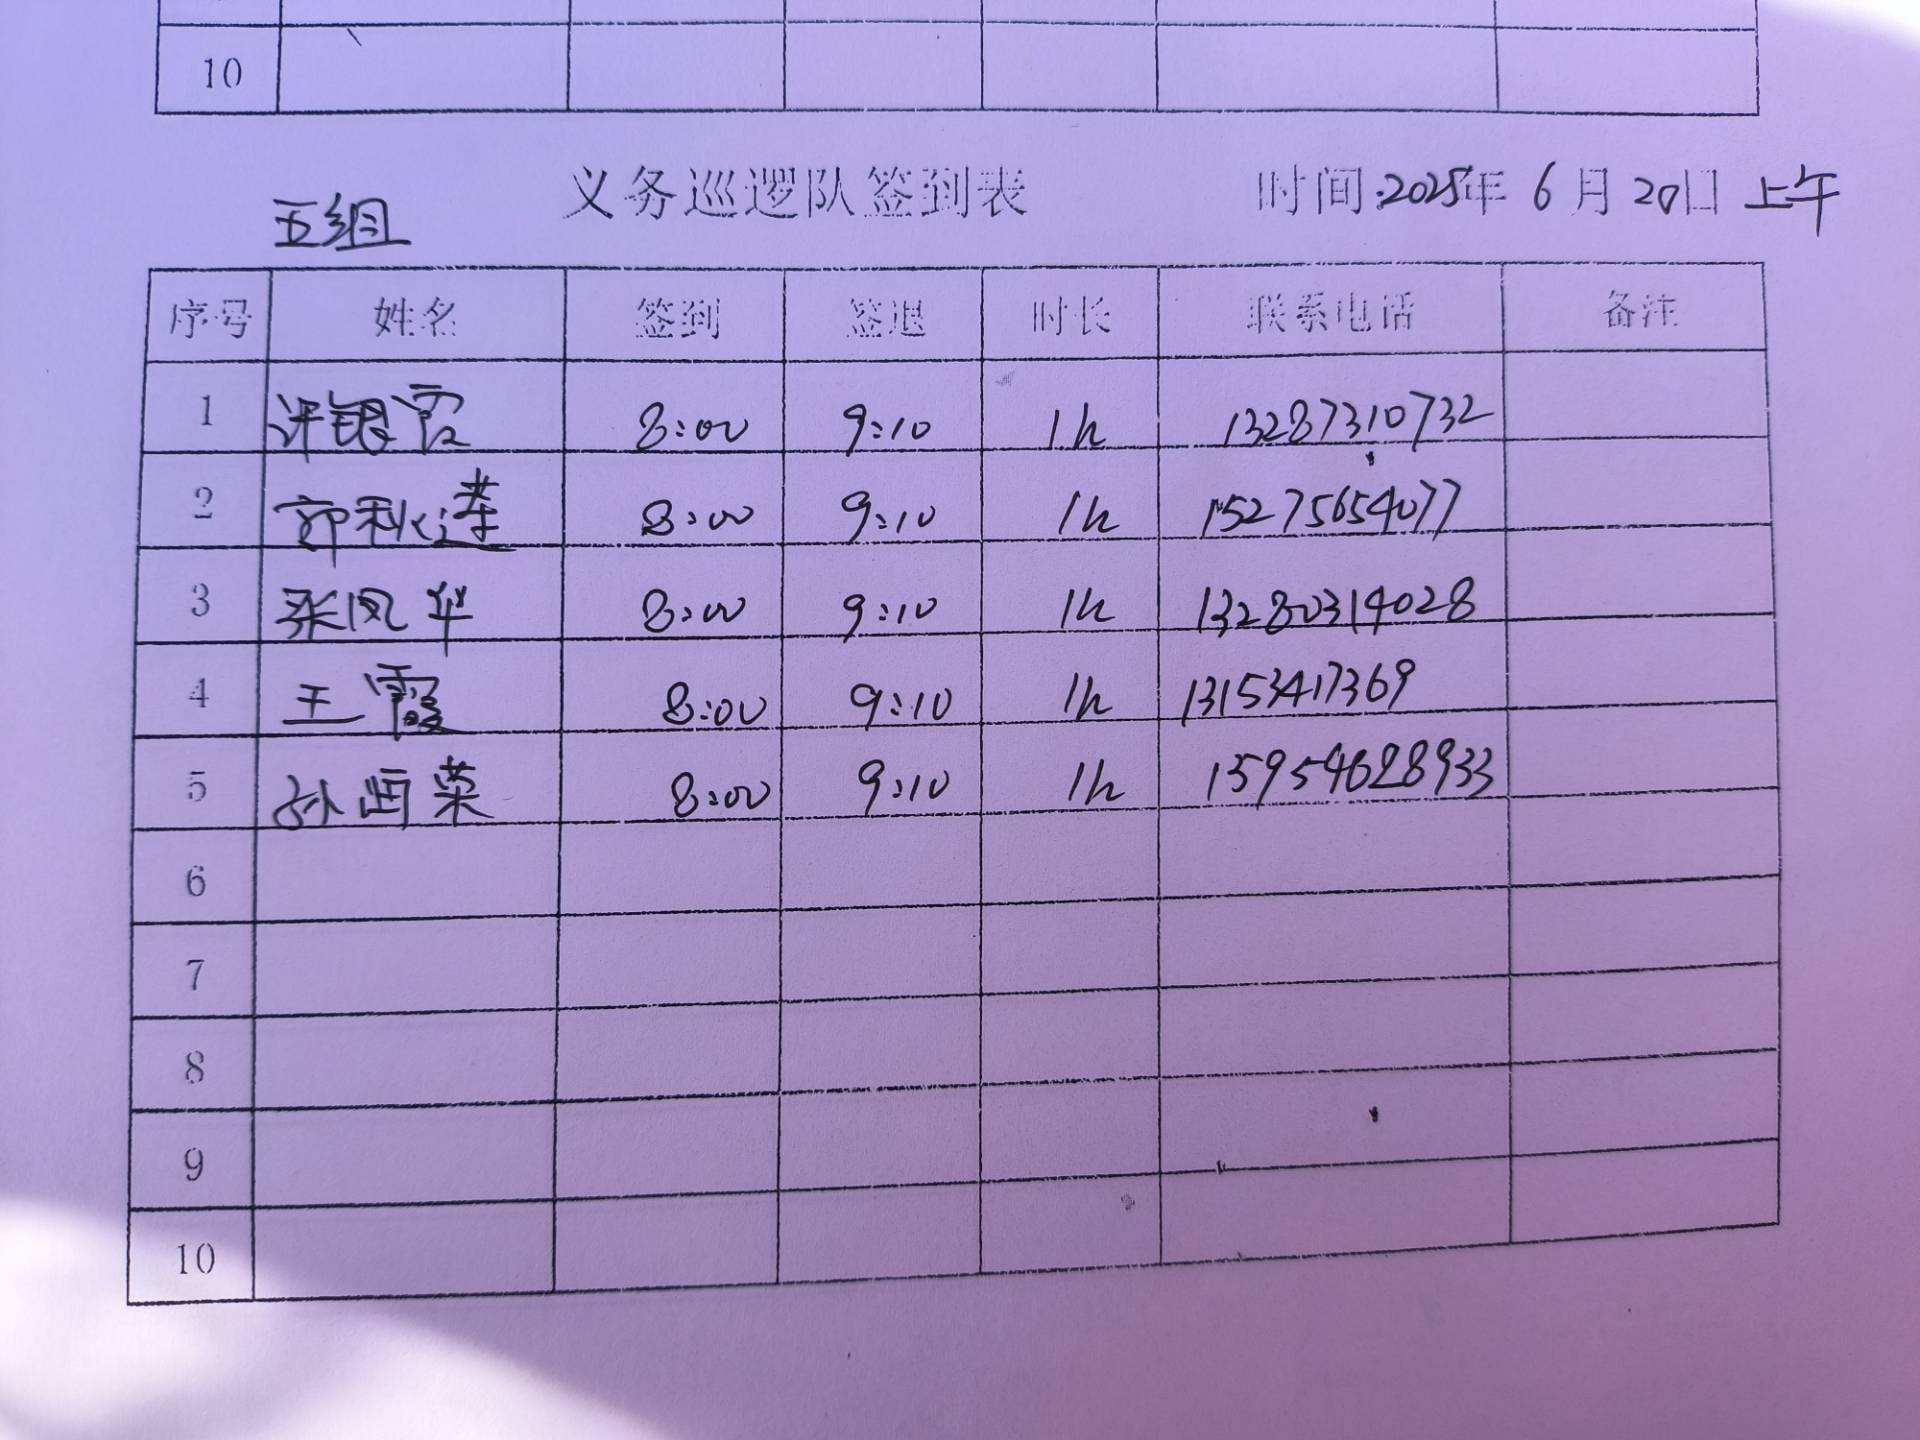 10
义务巡逻队签到表 时间:2025年 6月 20日 上午
五组
序号 姓名 签到 签退 时长 联系电话 备注
1 许银霞 8:00 9:10 1h 13287310732
2 郭秋莲 8:00 9:10 1h 15275654077
3 张凤华 8:00 9:10 1h 13280314028
4 王霞 8:00 9:10 1h 13153417369
5 孙 荣 8:00 9:10 1h 15954628933
6
7
8
9
10